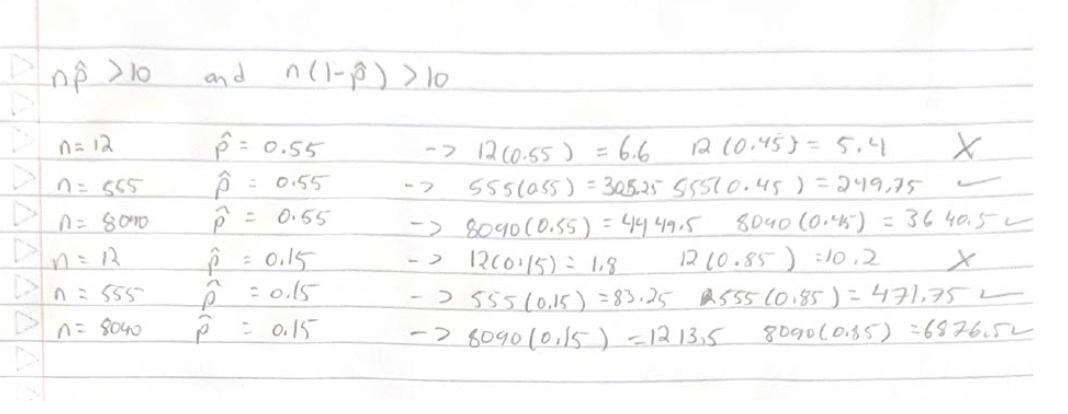 np̂ >10 and n(1-p̂) >10
n=12 p̂ = 0.55 -> 12(0.55) = 6.6 12(0.45) = 5.4 X
n= 555 p̂ = 0.55 -> 555(0.55) = 305.25 555(0.45) = 249.75 ✓
n= 8090 p̂ = 0.55 -> 8090(0.55) = 4449.5 8090(0.45) = 3640.5 ✓
n= 12 p̂ = 0.15 -> 12(0.15) = 1.8 12(0.85) = 10.2 X
n= 555 p̂ = 0.15 -> 555(0.15) = 83.25 555(0.85) = 471.75 ✓
n= 8090 p̂ = 0.15 -> 8090(0.15) = 1213.5 8090(0.85) = 6876.5 ✓